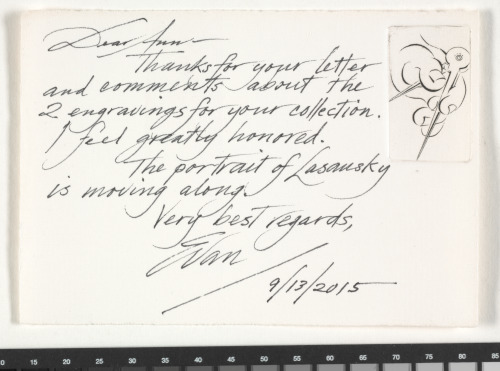 Dear Ann—
Thanks for your letter
and comments about the
2 engravings for your collection.
I feel greatly honored.
The portrait of Lasansky
is moving along.
Very best regards,
Evan
9/13/2015
0 10 15 20 25 30 35 40 45 50 55 60 65 70 75 80 85